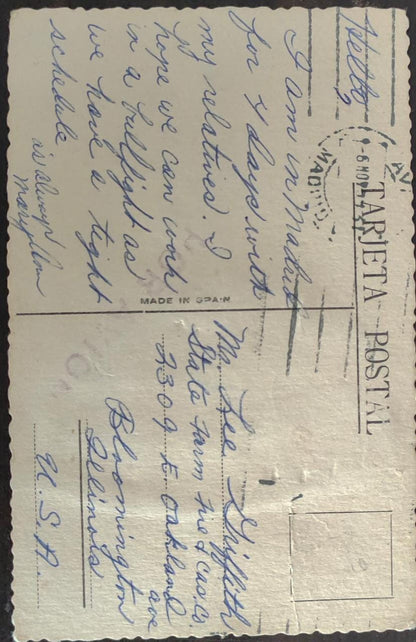 TARJETA POSTAL
MADRID
Hello,
I am in Madrid
for 4 days with
my relatives. I
hope we can work
in a bullfight as
we have a tight
schedule
as always
Mary Ann
MADE IN SPAIN
Mr. Lee Griffith
State Farm Fire & Cas. Co
2309 E. Oakland
ave
Bloomington
Illinois
U.S.A.